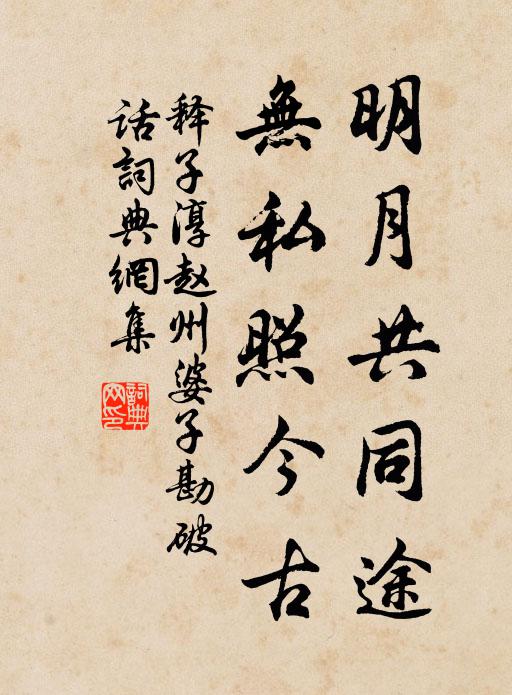 明月共同途
無私照今古
释子淳赵州婆子勘破
话詞典網集
詞典網印